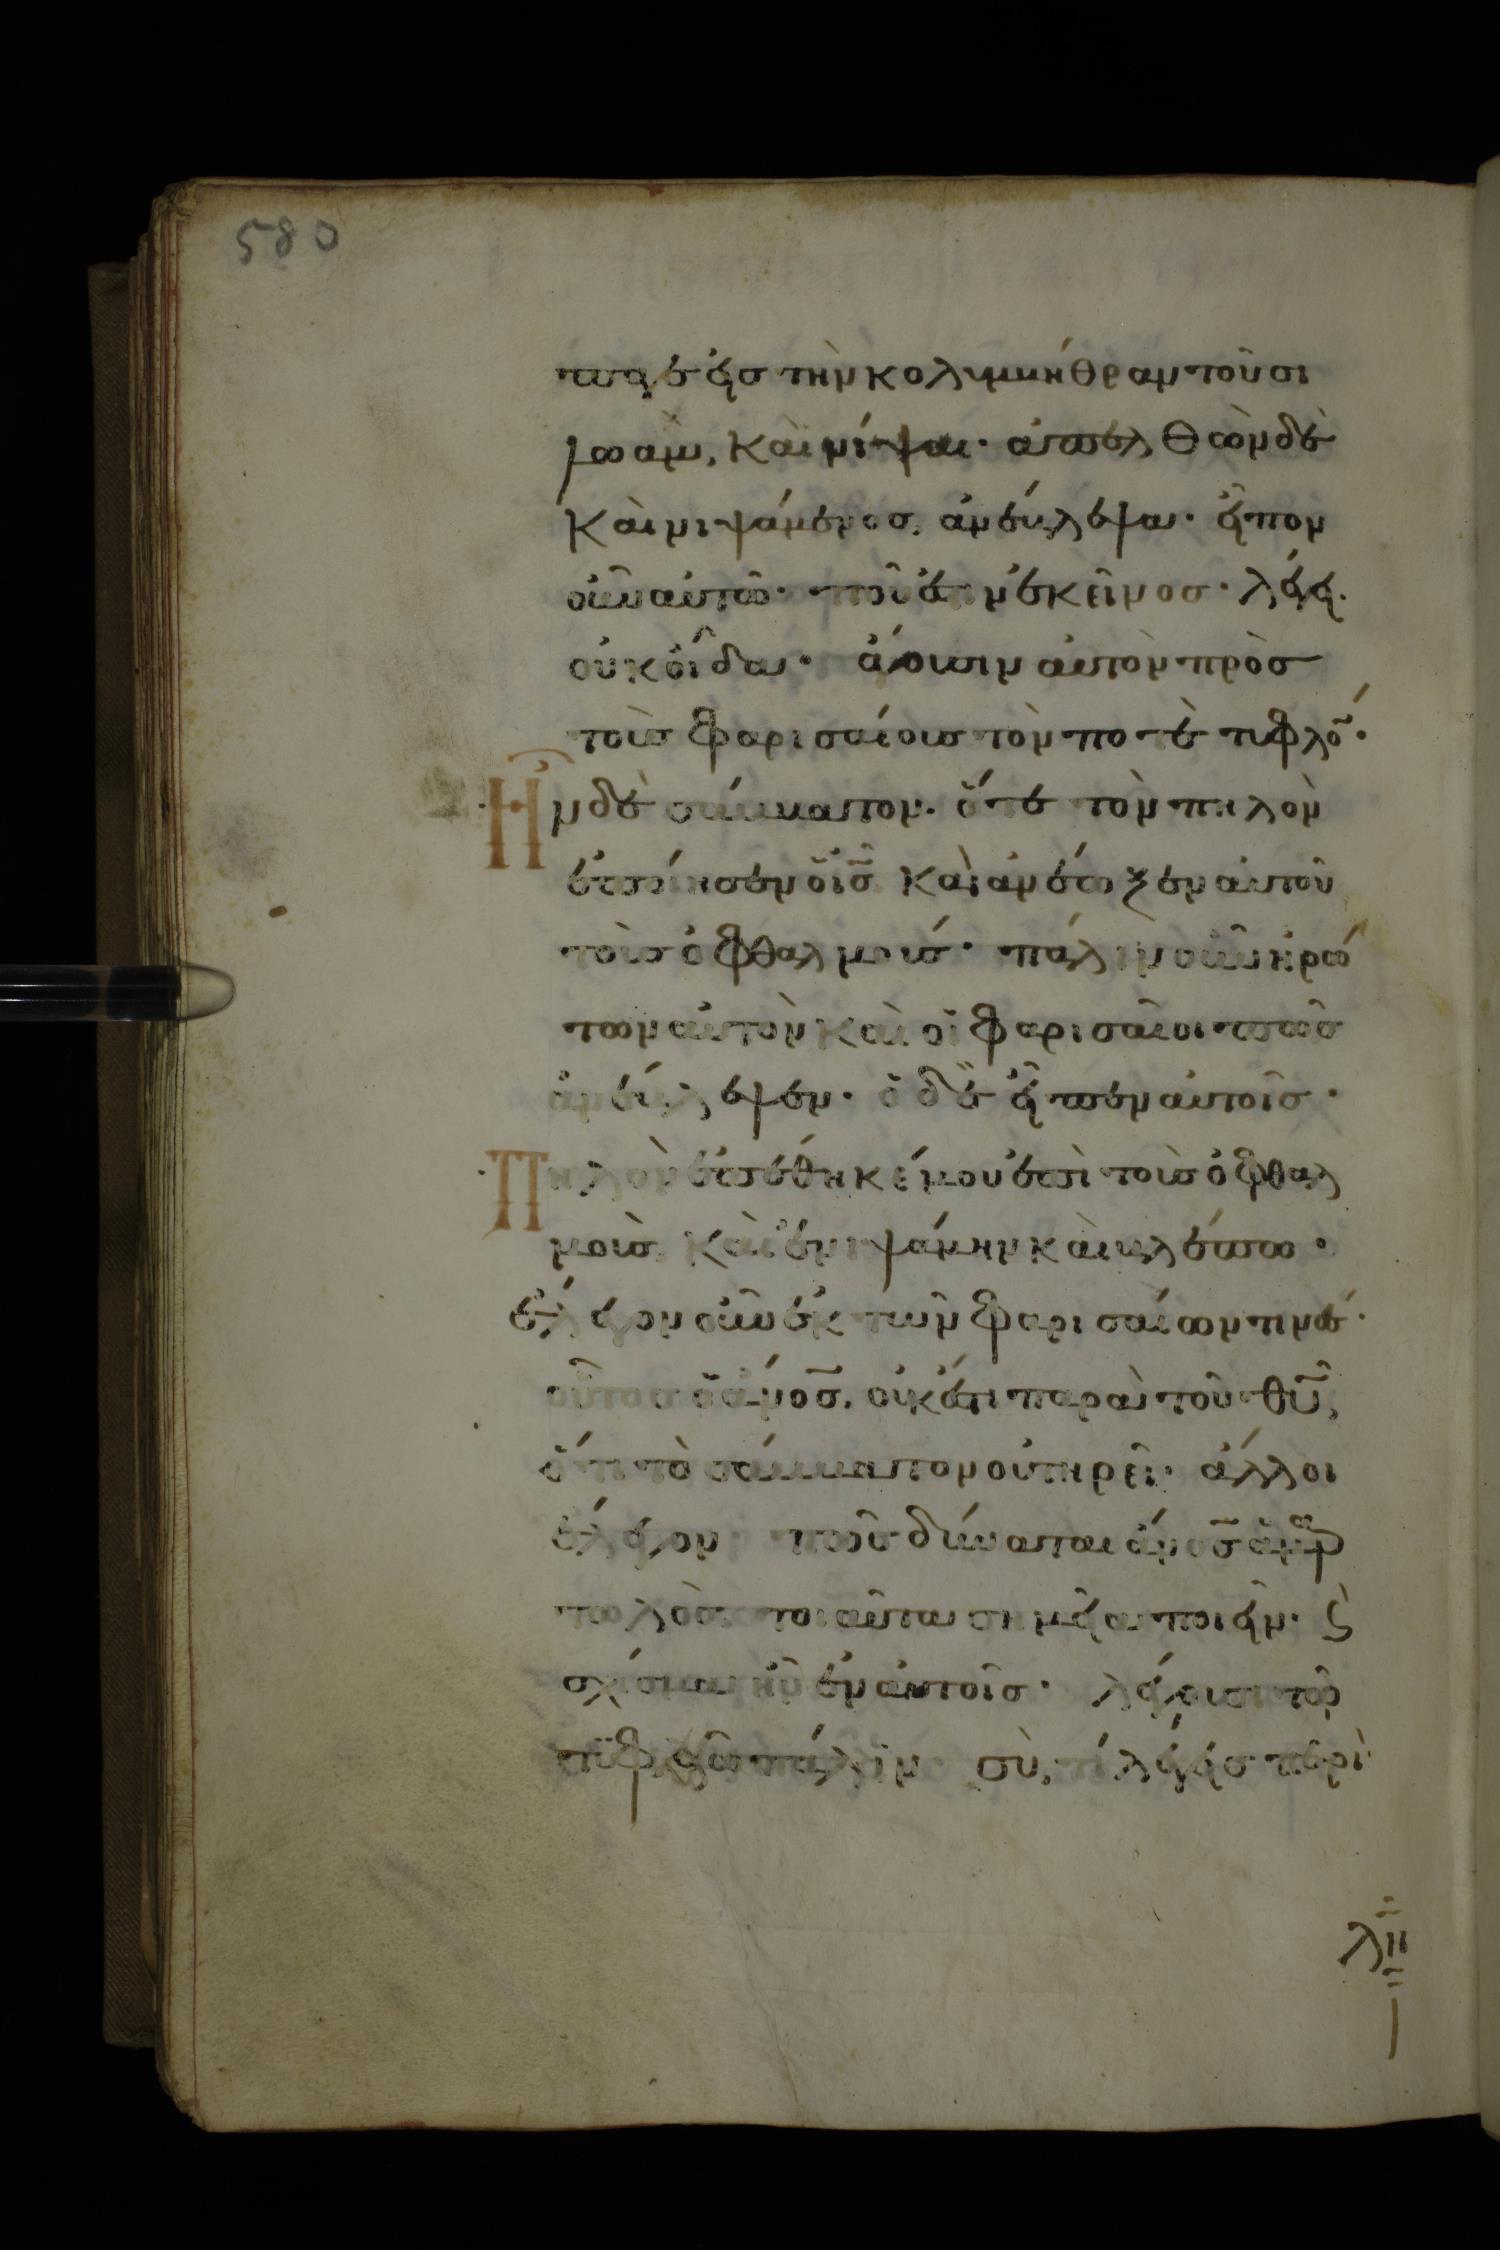 580
παγε εἰς τὴν κολυμβήθραν τοῦ σι
λωὰμ, καὶ νίψαι· ἀπελθὼν δὲ
καὶ νιψάμενος, ἀνέβλεψα· εἶπον
οὖν αὐτῶ· ποῦ ἐστιν ἐκεῖνος· λέγει·
οὐκ οἶδα· ἄγουσιν αὐτὸν πρὸς
τοὺς φαρισαίους τὸν ποτὲ τυφλό̄·
Ἦν δὲ σάββατον· ὅτε τὸν πηλὸν
ἐποίησεν ὁ ῑς̄ καὶ ἀνέωξεν αὐτοῦ
τοὺς ὀφθαλμούς· πάλιν οὖν ἠρώ
των αὐτὸν καὶ οἱ φαρισαῖοι πῶς
ἀνέβλεψεν· ὁ δὲ εἶπεν αὐτοῖς·
Πηλὸν ἐπέθηκέ μου ἐπὶ τοὺς ὀφθαλ
μοὺς καὶ ἐνιψάμην καὶ βλέπω·
ἔλεγον οὖν ἐκ τῶν φαρισαίων τινές·
οὗτος ὁ ἄνος̄, οὐκ ἔστι παρὰ τοῦ θῡ,
ὅτι τὸ σάββατον οὐ τηρεῖ· ἄλλοι
ἔλεγον πῶς δύναται ἄνος̄ ἁμαρ
τωλὸς τοιαῦτα σημεῖα ποιεῖν· ϛ̀
σχίσμα ἦν ἐν αὐτοῖς· λέγουσι τῶ
τυφλῶ πάλιν σὺ, τί λέγεις περὶ
λη